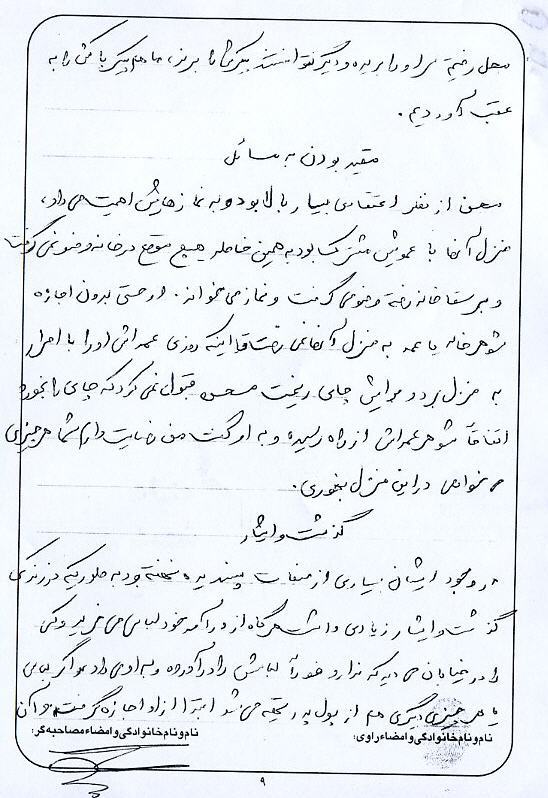 محل رفتیم سر او را بریده و دیگر نتوانستند پیکرش را ببرند، ما هم پیکر پاکش را به
عقب آوردیم.
مقید بودن به مسائل
محسن از نظر اعتقادی بسیار بالا بود و به نمازهایش اهمیت می‌داد،
منزل آنها با عمویش مشترک بود به همین خاطر هیچ موقع در خانه وضو نمی‌گرفت
و می‌رفت خانه وضو می‌گرفت و نماز می‌خواند. او حتی بدون اجازه
شوهرخاله یا عمه به منزل آنها نمی‌رفت تا اینکه روزی عمه‌اش او را با اصرار
به منزل برد و برایش چای ریخت محسن قبول نمی‌کرد که چای را بخورد
اتفاقاً شوهر عمه‌اش از راه رسید و به او گفت من رضایت دارم شما هر چیزی
می‌خواهی در این منزل بخوری.
گذشت و ایثار
در وجود ایشان بسیاری از صفات پسندیده نهفته بود به طوریکه در زندگی
گذشت و ایثار زیادی داشت هر گاه از درآمد خود لباس می‌خرید و کسی
را در خیابان می‌دید که ندارد فوراً لباسش را درآورده و به او می‌داد و اگر لباس
یا هر چیزی دیگری هم از پول پدر تهیه می‌شد ابتدا از او اجازه گرفته و آن
نام و نام خانوادگی و امضاء راوی: نام و نام خانوادگی و امضاء مصاحبه‌گر:
۹